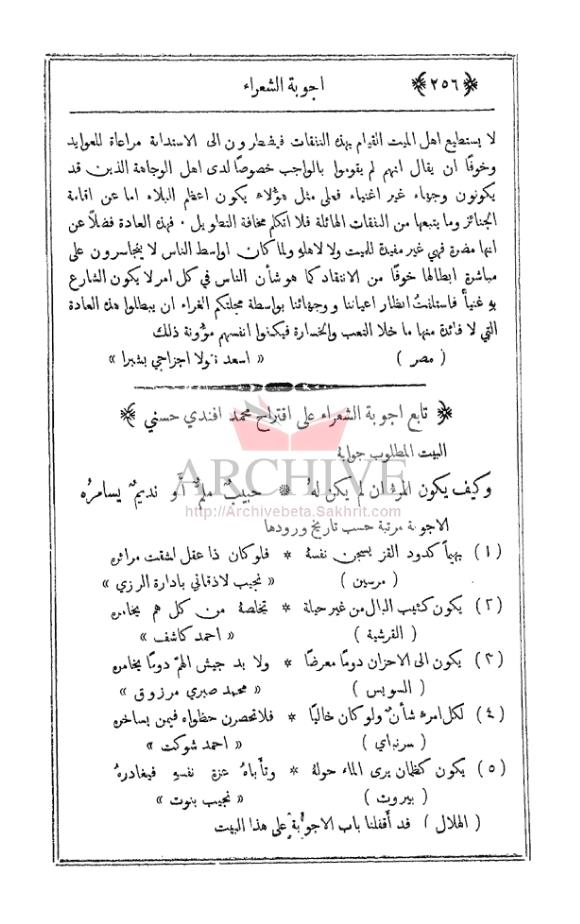 ﴿ ٢٥٦ ﴾ اجوبة الشعراء
لا يستطيع اهل الميت القيام بهذه النفقات فيضطرون الى الاستدانة مراعاة للعوايد
وخوفًا ان يقال انهم لم يقوموا بالواجب خصوصًا لدى اهل الوجاهة الذين قد
يكونون وجهاء غير اغنياء فعلى مثل هؤلاء يكون اعظم البلاء اما عن اقامة
الجنائز وما يتبعها من النفقات الهائلة فلا اتكلم مخافة التطويل ٠ فهذه العادة فضلاً عن
انها مضرة فهي غير مفيدة للميت ولا لاهله ولما كان اواسط الناس لا يتجاسرون على
مباشرة ابطالها خوفًا من الانتقاد كما هو شأن الناس في كل امر لا يكون الشارع
به غنياً فاستلفتُ انظار اعياننا ووجهائنا بواسطة مجلتكم الغراء ان يبطلوا هذه العادة
التي لا فائدة منها ما خلا التعب والخسارة فيكفوا انفسهم مؤونة ذلك
( مصر ) « اسعد نولا اجزاجي بشبرا »
﴿ تابع اجوبة الشعراء على اقتراح محمد افندي حسني ﴾
البيت المطلوب جوابة
ARCHIVE
وكيف يكون المرء ان لم يكن لهُ * حبيبٌ ملمٌّ أَو نديمٌ يسامرُه
http://Archivebeta.Sakhrit.com
الاجوبة مرتبة حسب تاريخ ورودها
( ١ ) بهيماً كدود القز يسجن نفسهُ * فلو كان ذا عقل لشقت مرائره
( مرسين ) « نجيب لاذقاني بادارة الرزي »
( ٢ ) يكون كئيب البال من غير حيلة * تخلصهُ من كل هم يخامره
( القرشية ) « احمد كاشف »
( ٣ ) يكون الى الاحزان دومًا معرضًا * ولا بد جيش الهمّ دومًا يخامره
( السويس ) « محمد صبري مرزوق »
( ٤ ) لكل امرء شأنٌ ولو كان خاليًا * فلا تحصرن حظواه فيمن يساخره
( سرنباي ) « احمد شوكت »
( ٥ ) يكون كظمآن يرى الماء حولهُ * وتأباهُ عزة نفسهِ فيغادرهُ
( بيروت ) « نجيب بنوت »
( الهلال ) قد أقفلنا باب الاجوبة على هذا البيت